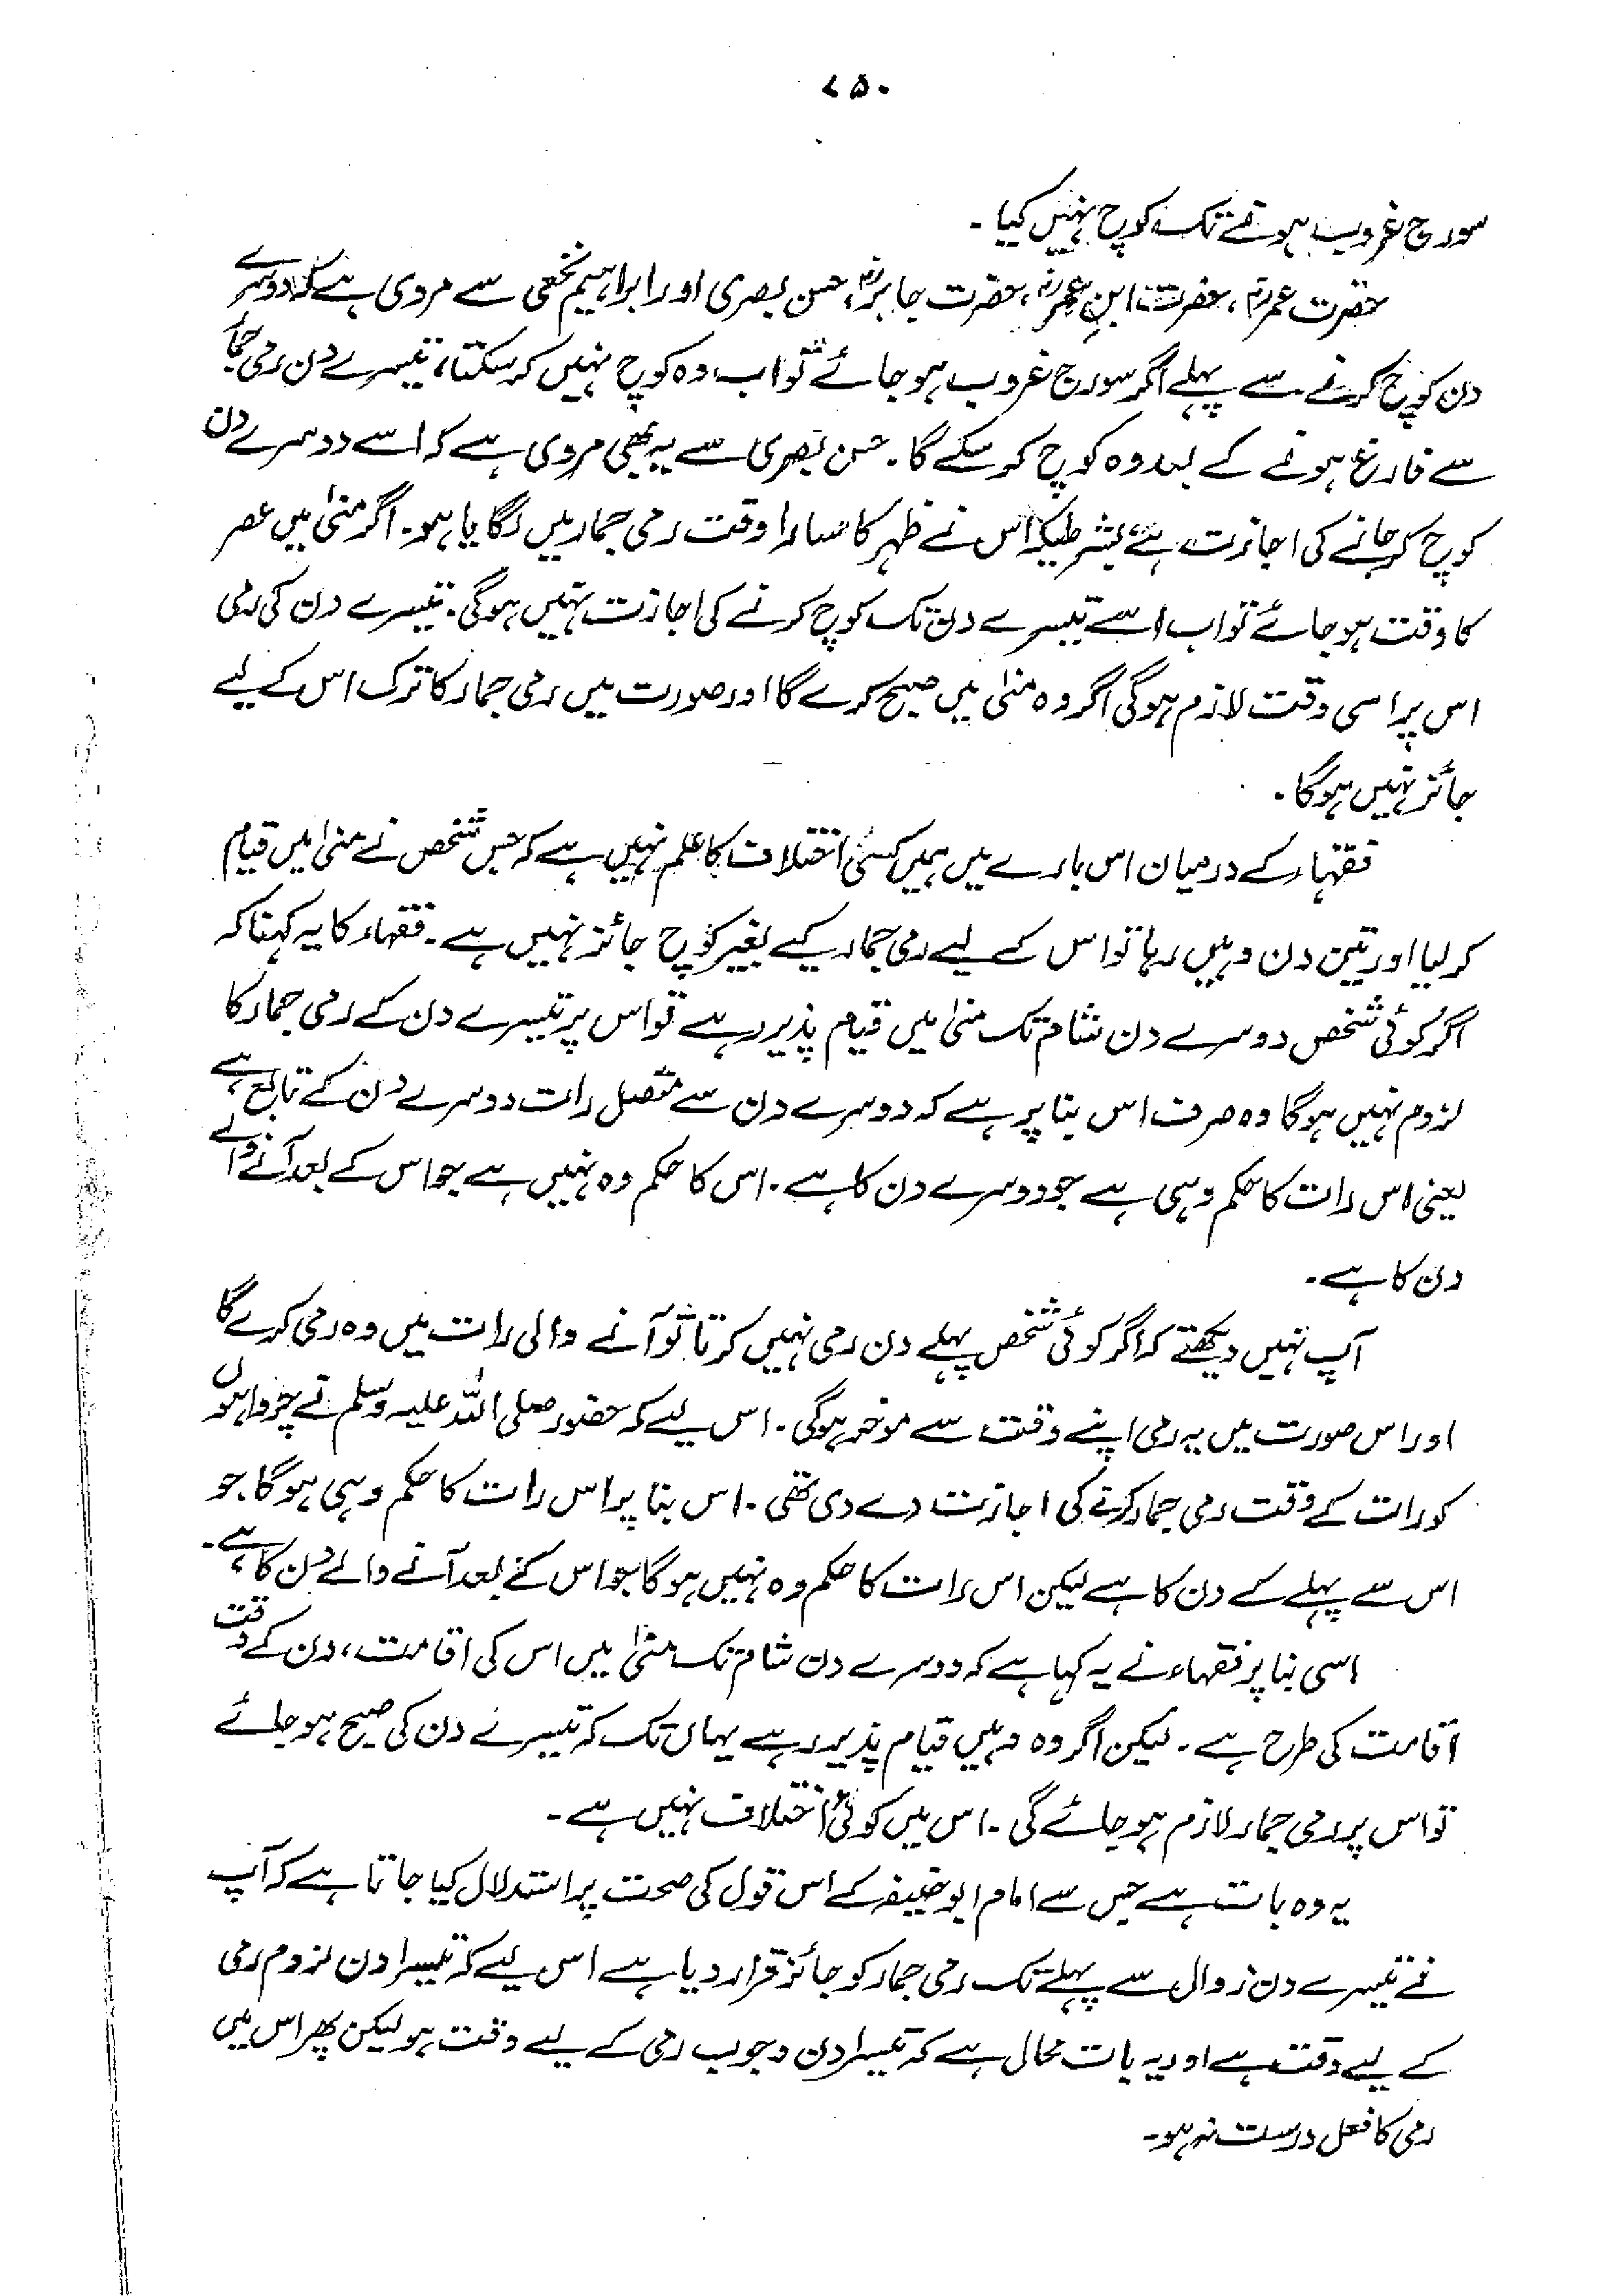 ۷۵۰
سورج غروب ہونے تک کوچ نہیں کیا۔
حضرت عمرؓ، حضرت ابن عمرؓ، حضرت جابرؓ، حسن بصری اور ابراہیم نخعی سے مروی ہے کہ دوسرے
دن کوچ کرنے سے پہلے اگر سورج غروب ہو جائے تو اب وہ کوچ نہیں کر سکتا، تیسرے دن رمی جمار
سے فارغ ہونے کے بعد وہ کوچ کر سکے گا۔ حسن بصری سے یہ بھی مروی ہے کہ اسے دوسرے دن
کوچ کر جانے کی اجازت ہے بشرطیکہ اس نے ظہر کا سارا وقت رمی جمار میں لگایا ہو۔ اگر منیٰ میں عصر
کا وقت ہو جائے تو اب اسے تیسرے دن تک کوچ کرنے کی اجازت نہیں ہوگی۔ تیسرے دن کی رمی
اس پر اسی وقت لازم ہوگی اگر وہ منیٰ میں صبح کرے گا اور صورت میں رمی جمار کا ترک اس کے لیے
جائز نہیں ہوگا۔
فقہاء کے درمیان اس بارے میں ہمیں کسی اختلاف کا علم نہیں ہے کہ جس شخص نے منیٰ میں قیام
کر لیا اور تین دن وہیں رہا تو اس کے لیے رمی جمار کیے بغیر کوچ جائز نہیں ہے۔ فقہاء کا یہ کہنا کہ
اگر کوئی شخص دوسرے دن شام تک منیٰ میں قیام پذیر رہے تو اس پر تیسرے دن کے رمی جمار کا
لزوم نہیں ہوگا وہ صرف اس بنا پر ہے کہ دوسرے دن سے متصل رات دوسرے دن کے تابع ہے
یعنی اس رات کا حکم وہی ہے جو دوسرے دن کا ہے۔ اس کا حکم وہ نہیں ہے جو اس کے بعد آنے والے
دن کا ہے۔
آپ نہیں دیکھتے کہ اگر کوئی شخص پہلے دن رمی نہیں کرتا تو آنے والی رات میں وہ رمی کرے گا
اور اس صورت میں یہ رمی اپنے وقت سے موخر ہوگی۔ اس لیے کہ حضور صلی اللہ علیہ وسلم نے چرواہوں
کو رات کے وقت رمی جمار کرنے کی اجازت دے دی تھی۔ اس بنا پر اس رات کا حکم وہی ہوگا جو
اس سے پہلے کے دن کا ہے لیکن اس رات کا حکم وہ نہیں ہوگا جو اس کے بعد آنے والے دن کا ہے۔
اسی بنا پر فقہاء نے یہ کہا ہے کہ دوسرے دن شام تک منیٰ میں اس کی اقامت، دن کے وقت
اقامت کی طرح ہے۔ لیکن اگر وہ وہیں قیام پذیر رہے یہاں تک کہ تیسرے دن کی صبح ہو جائے
تو اس پر رمی جمار لازم ہو جائے گی۔ اس میں کوئی اختلاف نہیں ہے۔
یہ وہ بات ہے جس سے امام ابو حنیفہ کے اس قول کی صحت پر استدلال کیا جاتا ہے کہ آپ
نے تیسرے دن زوال سے پہلے تک رمی جمار کو جائز قرار دیا ہے اس لیے کہ تیسرا دن لزوم رمی
کے لیے وقت ہے اور یہ بات محال ہے کہ تیسرا دن وجوب رمی کے لیے وقت ہو لیکن پھر اس میں
رمی کا فعل درست نہ ہو۔